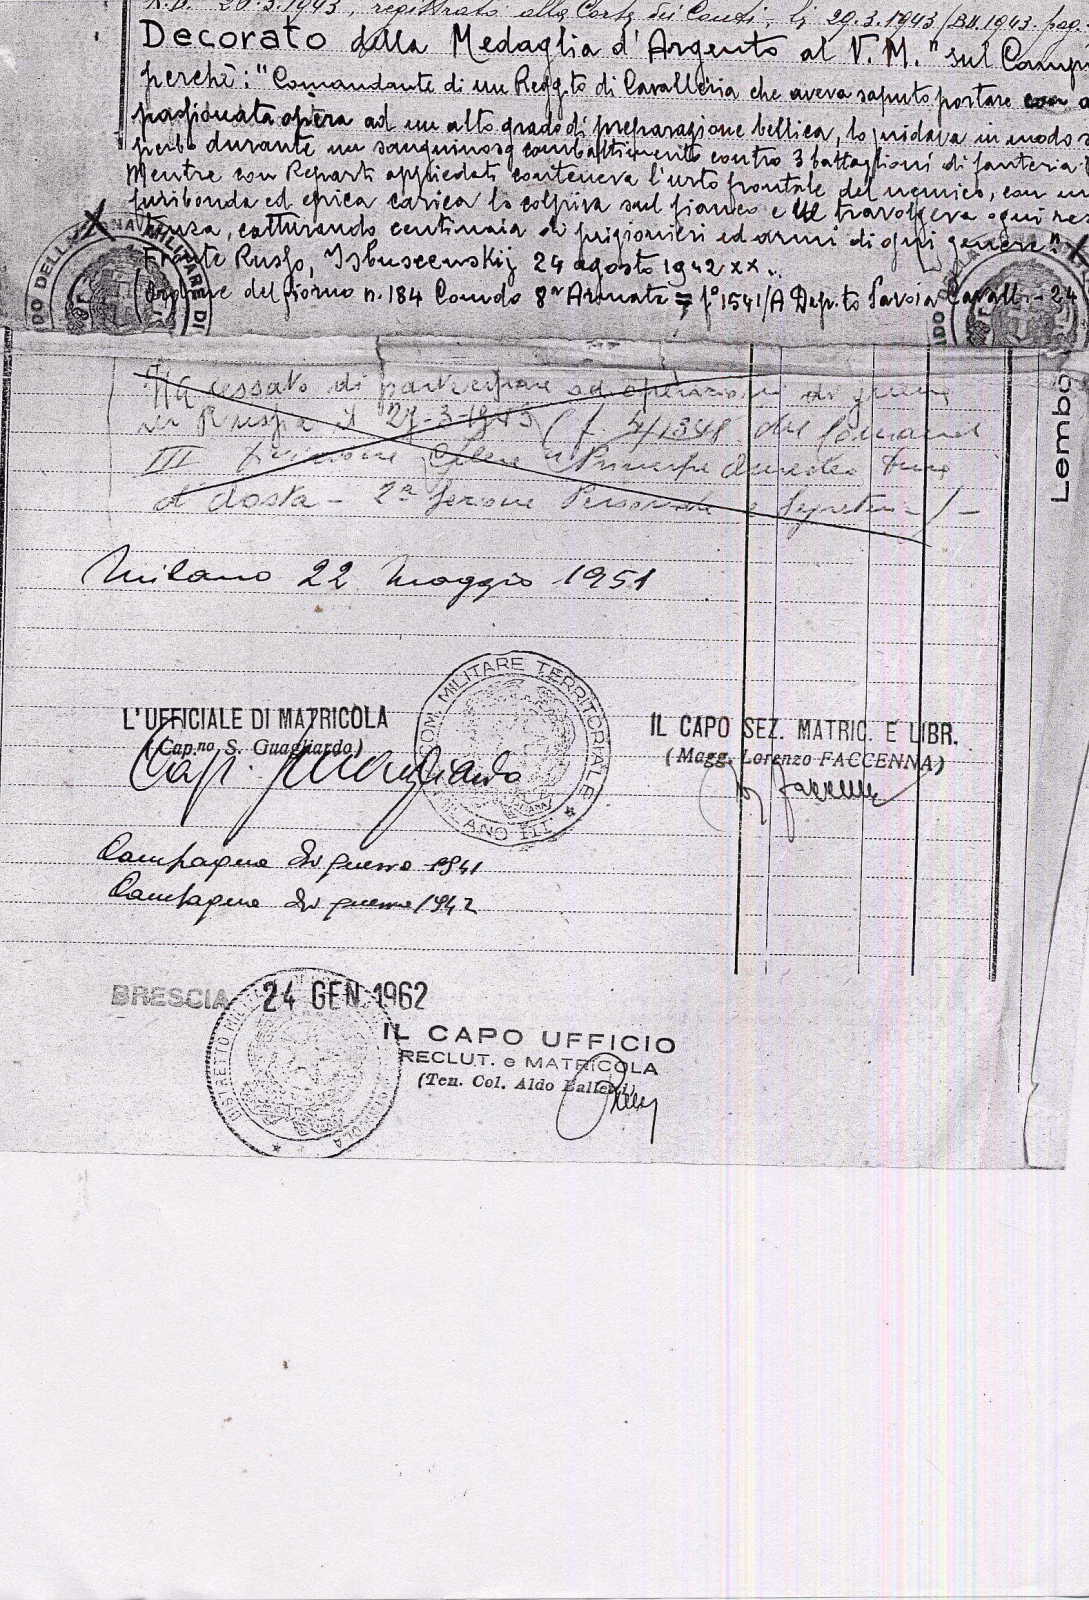 R.D. 20.3.1943, registrato alla Corte dei Conti, li 29.3.1943/BU.1943. pag.
Decorato della Medaglia d'Argento al V.M. "sul Camp
perchè: "Comandante di un Regg.to di Cavalleria che aveva saputo portare con a
passionata opera ad un alto grado di preparazione bellica, lo guidava in modo s
perbo durante un sanguinoso combattimento contro 3 battaglioni di fanteria.
Mentre con Reparti appiedati conteneva l'urto frontale del nemico, con un
furibonda ed epica carica lo colpiva sul fianco e travolgeva ogni resi
tenza, catturando centinaia di prigionieri ed armi di ogni genere".
Fronte Russo, Isbuscenskij 24 agosto 1942 xx..
(Ordine del giorno n. 184 Comdo 8ª Armata = f° 1541/A Dep.to Savoia Cavall. - 24
Ha cessato di partecipare ad operazioni di guerra
in Russia il 27-3-1943 (f. 2/1348 del Comando
III Divisione Celere "Principe Amedeo Duca
d'Aosta - 2ª Sezione Personale e Segreteria -/-
Lembo
Milano 22 Maggio 1951
L'UFFICIALE DI MATRICOLA
(Cap.no S. Guagliardo)
Cap. Guagliardo
COM. MILITARE TERRITORIALE
MILANO III
IL CAPO SEZ. MATRIC. E LIBR.
(Magg. Lorenzo FACCENNA)
Campagna di guerra 1941
Campagna di guerra 1942
BRESCIA 24 GEN. 1962
DISTRETTO MILITARE
IL CAPO UFFICIO
RECLUT. e MATRICOLA
(Ten. Col. Aldo